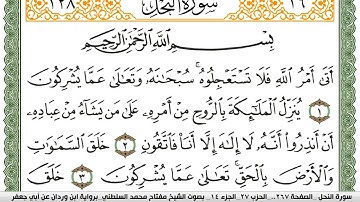 ١٢٨ سُورَةُ النَّحْلِ ١٦
بِسْمِ اللَّهِ الرَّحْمَٰنِ الرَّحِيمِ
أَتَىٰ أَمْرُ اللَّهِ فَلَا تَسْتَعْجِلُوهُ سُبْحَانَهُ وَتَعَالَىٰ عَمَّا يُشْرِكُونَ
١ يُنَزِّلُ الْمَلَائِكَةَ بِالرُّوحِ مِنْ أَمْرِهِ عَلَىٰ مَن يَشَاءُ مِنْ عِبَادِهِ
أَنْ أَنذِرُوا أَنَّهُ لَا إِلَٰهَ إِلَّا أَنَا فَاتَّقُونِ ٢ خَلَقَ السَّمَاوَاتِ
وَالْأَرْضَ بِالْحَقِّ تَعَالَىٰ عَمَّا يُشْرِكُونَ ٣ خَلَقَ
سورة النحل .الصفحة ٢٦٧ .الحزب ٢٧ .الجزء ١٤ .بصوت الشيخ مفتاح محمد السلطني .برواية ابن وردان عن أبي جعفر